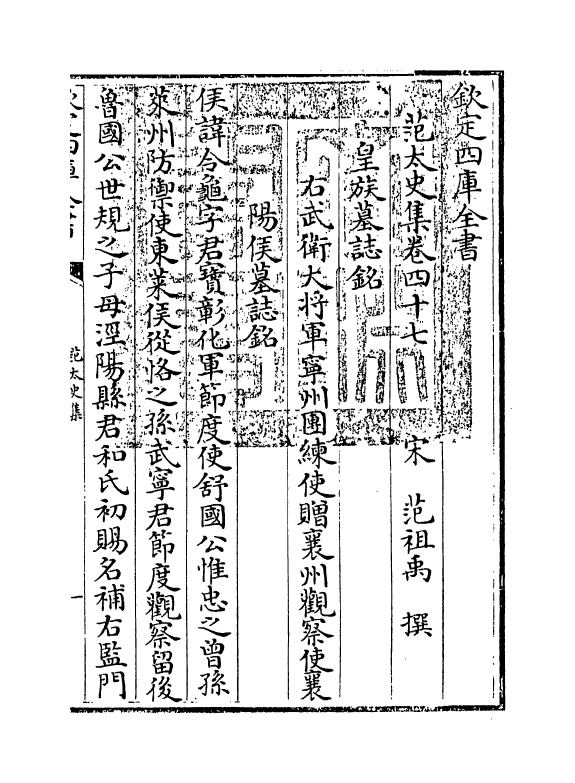 欽定四庫全書
范太史集卷四十七 宋 范祖禹 撰
皇族墓誌銘
右武衛大将軍寧州團練使贈襄州觀察使襄
陽侯墓誌銘
侯諱令龜字君寶彰化軍節度使舒國公惟忠之曾孫
萊州防禦使東萊侯從恪之孫武寧君節度觀察留後
魯國公世規之子母涇陽縣君和氏初賜名補右監門
范太史集
一